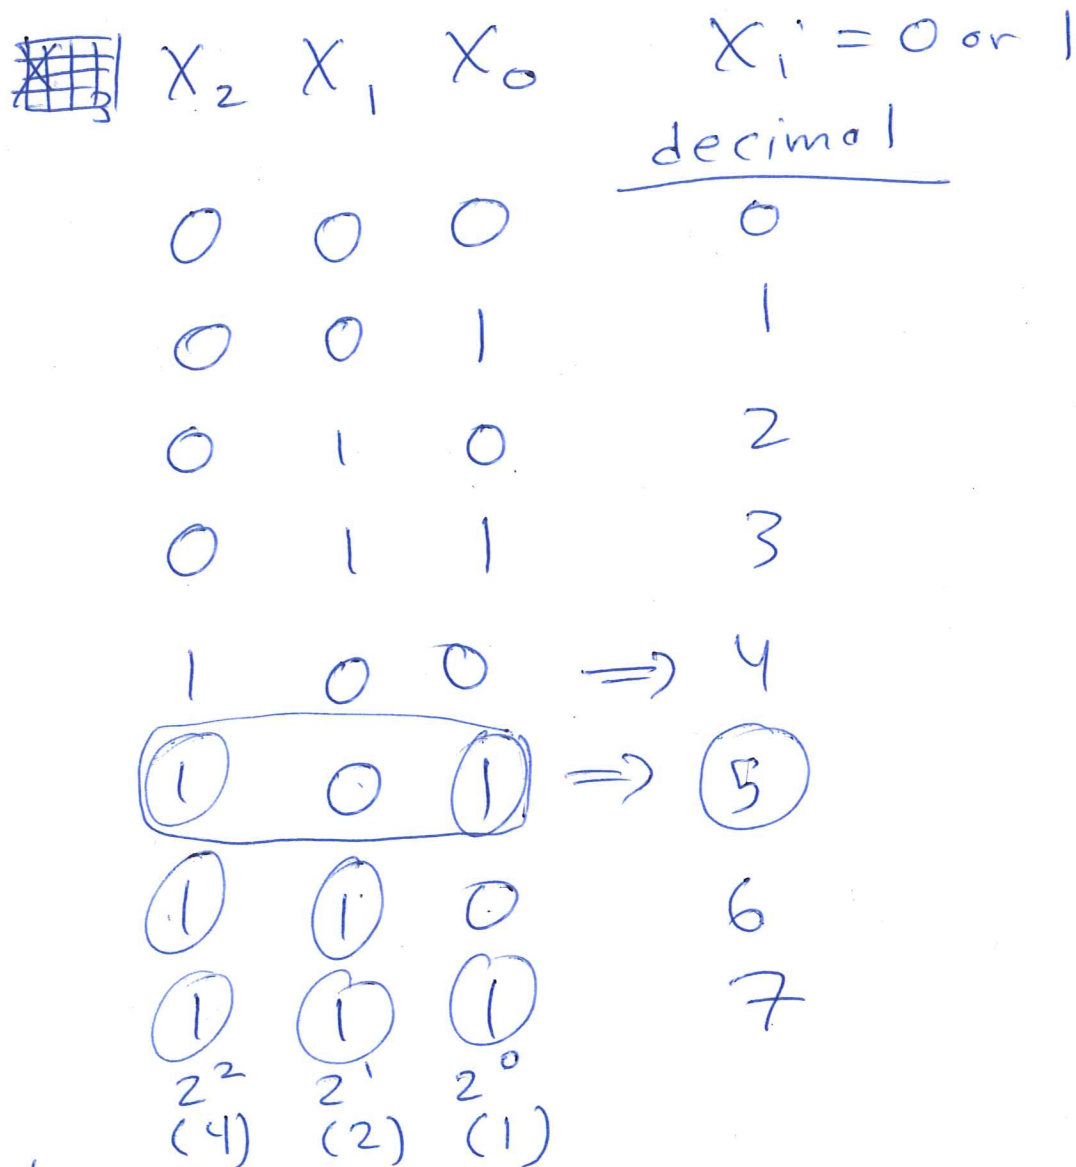 X₂ X₁ X₀ Xᵢ = 0 or 1
decimal
0 0 0 0
0 0 1 1
0 1 0 2
0 1 1 3
1 0 0 ⇒ 4
1 0 1 ⇒ 5
1 1 0 6
1 1 1 7
2² 2¹ 2⁰
(4) (2) (1)